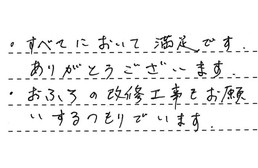 ・すべてにおいて満足です.
ありがとうございます.
・おふろの改修工事もお願
いするつもりでいます.